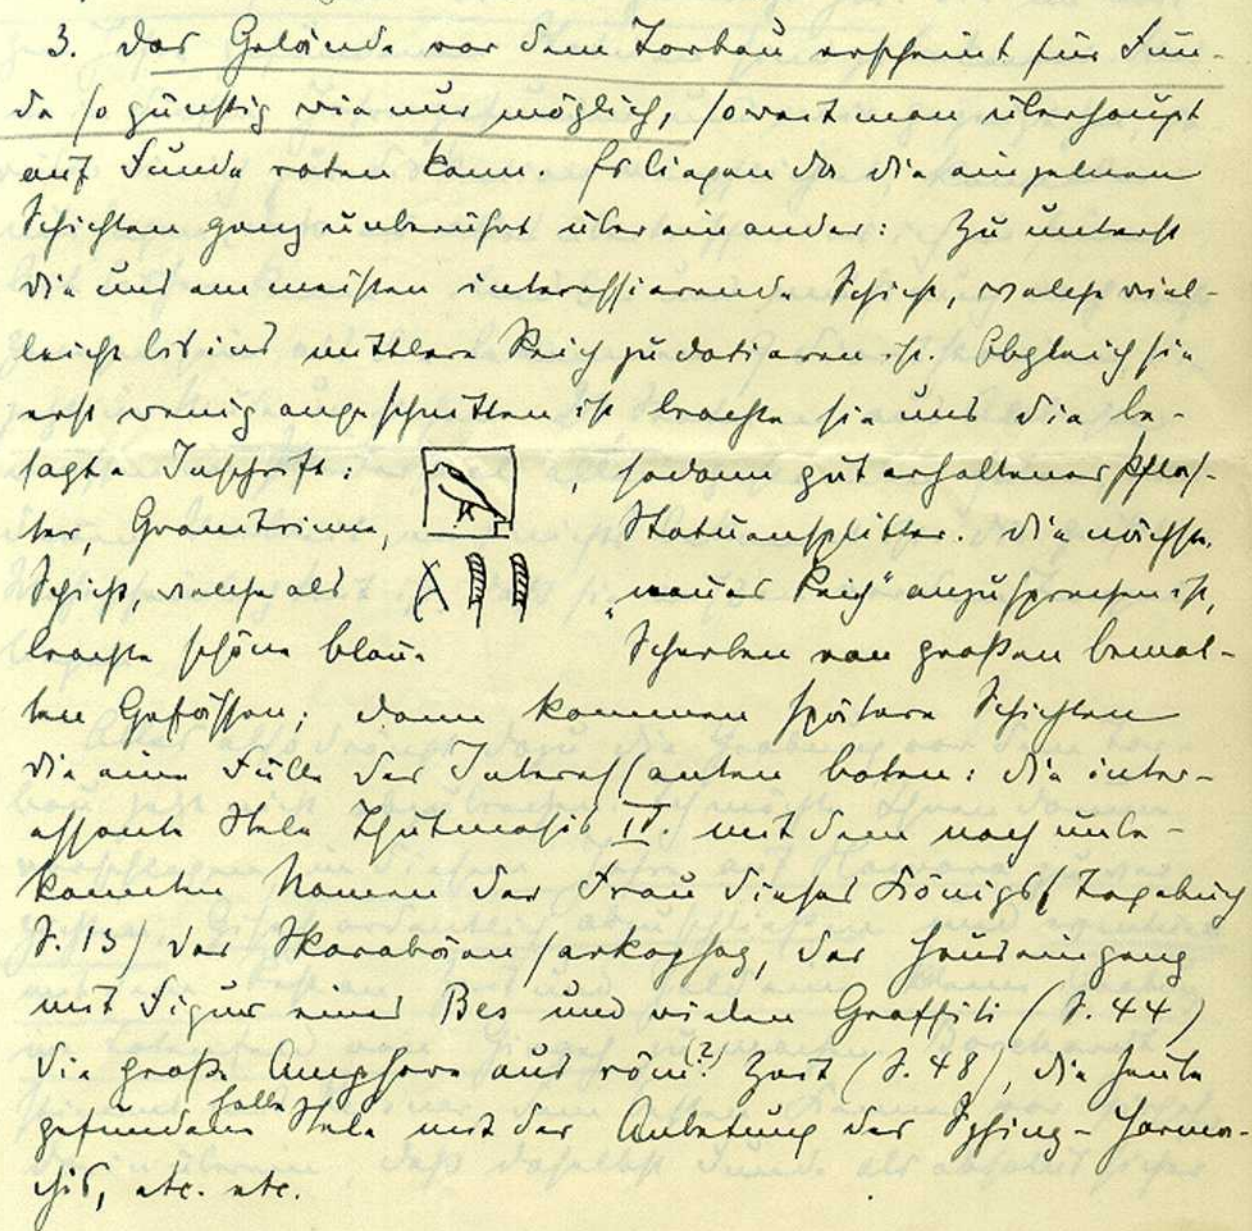 3. Das Gelände vor dem Torbau erscheint für Fun-
de so günstig wie nur möglich, soweit man überhaupt
auf Funde raten kann. Es liegen da die einzelnen
Schichten ganz unberührt übereinander: Zu unterst
die uns am meisten interessierende Schicht, welche viel-
leicht bis ins mittlere Reich zu datieren ist. Obgleich sie
erst wenig angeschnitten ist brachte sie uns die be-
sagte Inschrift: , sodann gut erhaltenes Pflas-
ter, Granitrinne, Statuensplitter. Die nächste
Schicht, welche als „neues Reich" anzusprechen ist,
brachte schöne blaue Scherben von großen bemal-
ten Gefässen; dann kommen spätere Schichten
die eine Fülle des Interessanten boten: die inter-
essante Stele Thutmosis IV. mit dem noch unbe-
kannten Namen der Frau dieses Königs (Tagebuch
S. 13) der Skarabäen sarkophag, der Hauseingang
mit Figur eines Bes und vielen Graffiti (S. 44)
die große Amphore aus röm.(?) Zeit (S. 48), die heute
gefundene halbe Stele mit der Anbetung des Sphinx-Harma-
chis, etc. etc.